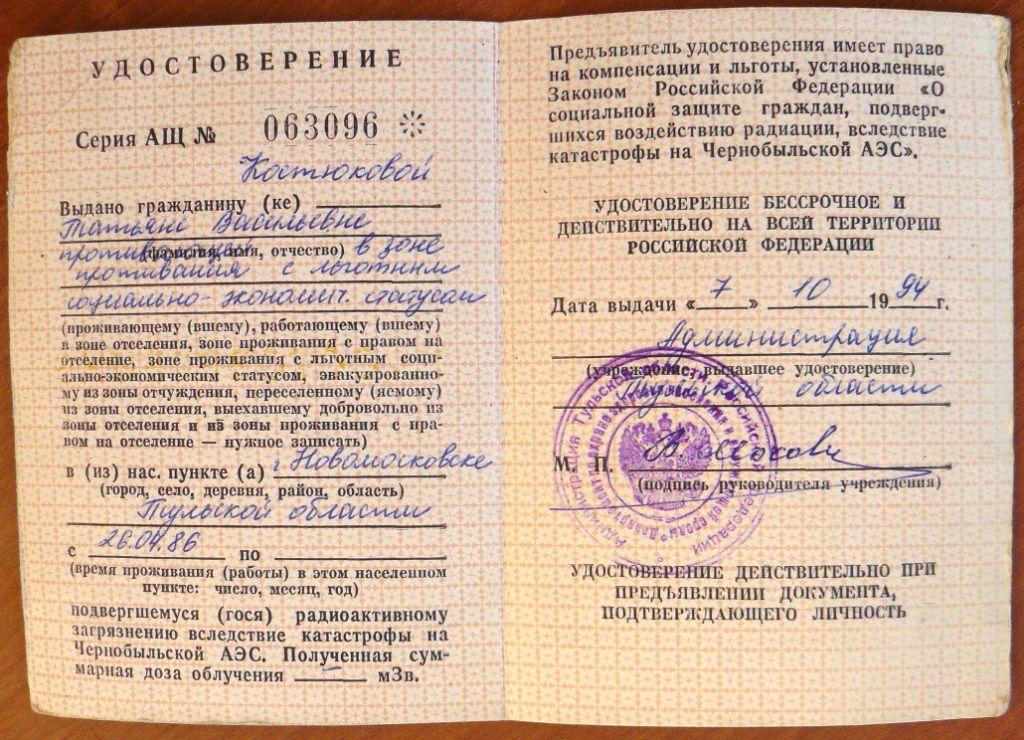 УДОСТОВЕРЕНИЕ
Серия АЩ № 063096
Костюковой
Выдано гражданину (ке)
Татьяне Васильевне
(фамилия, имя, отчество) в зоне
проживания с льготным
социально-экономич. статусом
(проживающему (вшему), работающему (вшему)
в зоне отселения, зоне проживания с правом на
отселение, зоне проживания с льготным соци-
ально-экономическим статусом, эвакуированно-
му из зоны отчуждения, переселенному (яемому)
из зоны отселения, выехавшему добровольно из
зоны отселения и из зоны проживания с пра-
вом на отселение — нужное записать)
в (из) нас. пункте (а) г. Новомосковске
(город, село, деревня, район, область)
Тульской области
с 26.04.86 по
(время проживания (работы) в этом населенном
пункте: число, месяц, год)
подвергшемуся (гося) радиоактивному
загрязнению вследствие катастрофы на
Чернобыльской АЭС. Полученная сум-
марная доза облучения — мЗв.
Предъявитель удостоверения имеет право
на компенсации и льготы, установленные
Законом Российской Федерации «О
социальной защите граждан, подверг-
шихся воздействию радиации, вследствие
катастрофы на Чернобыльской АЭС».
УДОСТОВЕРЕНИЕ БЕССРОЧНОЕ И
ДЕЙСТВИТЕЛЬНО НА ВСЕЙ ТЕРРИТОРИИ
РОССИЙСКОЙ ФЕДЕРАЦИИ
Дата выдачи «7» 10 1994 г.
Администрация
(учреждение, выдавшее удостоверение)
Тульской области
М. П.
(подпись руководителя учреждения)
УДОСТОВЕРЕНИЕ ДЕЙСТВИТЕЛЬНО ПРИ
ПРЕДЪЯВЛЕНИИ ДОКУМЕНТА,
ПОДТВЕРЖДАЮЩЕГО ЛИЧНОСТЬ